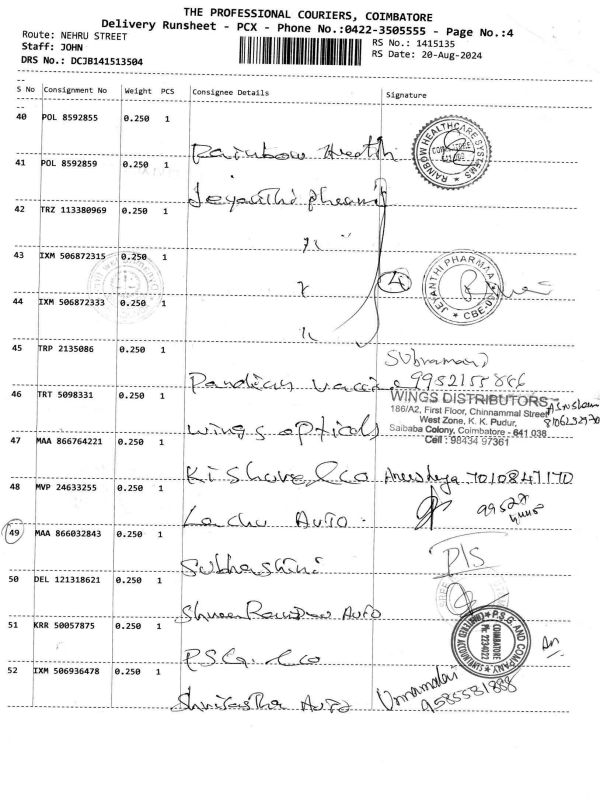 THE PROFESSIONAL COURIERS, COIMBATORE
Delivery Runsheet - PCX - Phone No.:0422-3505555 - Page No.:4
Route: NEHRU STREET
RS No.: 1415135
Staff: JOHN
RS Date: 20-Aug-2024
DRS No.: DCJB141513504
S No Consignment No Weight PCS Consignee Details Signature
40 POL 8592855 0.250 1 Rainbow Health
RAINBOW HEALTHCARE SYSTEMS
41 POL 8592859 0.250 1 Jeyanthi pharma
42 TRZ 113380969 0.250 1 〃
43 IXM 506872315 0.250 1 〃 4
JEYANTHI PHARMAA CBE
44 IXM 506872333 0.250 1 〃
45 TRP 2135086 0.250 1 Pandian vaccine
Subramani
9952155866
46 TRT 5098331 0.250 1 Wings opticals
WINGS DISTRIBUTORS
186/A2, First Floor, Chinnammal Street
West Zone, K. K. Pudur,
Saibaba Colony, Coimbatore - 641 038
Cell : 98434 97361
47 MAA 866764221 0.250 1 Kishore & Co 7010847170
48 MVP 24633255 0.250 1 Lachu Auto
49 MAA 866032843 0.250 1 Subhashini P/S
50 DEL 121318621 0.250 1 Auto
51 KRR 50057875 0.250 1 P.S.G. & Co
P.S.G AND COMPANY
COIMBATORE
Ph: 2234022
52 IXM 506936478 0.250 1 Auto
9585581888